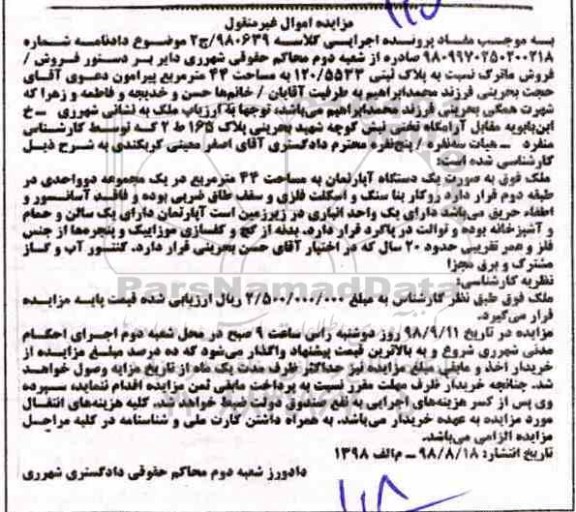 مزایده اموال غیرمنقول
به موجب مفاد پرونده اجرایی کلاسه ۹۸۰۶۳۹/ج۲ موضوع دادنامه شماره
۹۸۰۹۹۷۰۲۵۰۲۰۰۲۱۸ صادره از شعبه دوم محاکم حقوقی شهرری دایر بر دستور فروش /
فروش ماترک نسبت به پلاک ثبتی ۱۲۰/۵۵۳۳ به مساحت ۴۴ مترمربع پیرامون دعوی آقای
حجت بحرینی فرزند محمدابراهیم به طرفیت آقایان / خانم‌ها حسن و خدیجه و فاطمه و زهرا که
شهرت همگی بحرینی فرزند محمدابراهیم می‌باشد، توجها به ارزیاب ملک به نشانی شهرری ــ خ
ابن‌بابویه مقابل آرامگاه تختی نبش کوچه شهید بحرینی پلاک ۱۶۵ ط ۲ که توسط کارشناس
منفرد ــ هیات سه‌نفره / پنج‌نفره محترم دادگستری آقای اصغر معینی کربکندی به شرح ذیل
کارشناسی شده است:
ملک فوق به صورت یک دستگاه آپارتمان به مساحت ۴۴ مترمربع در یک مجموعه دوواحدی در
طبقه دوم قرار دارد روکار بنا سنگ و اسکلت فلزی و سقف طاق ضربی بوده و فاقد آسانسور و
اطفاء حریق می‌باشد دارای یک واحد انباری در زیرزمین است آپارتمان دارای یک سالن و حمام
و آشپزخانه بوده و توالت در پاگرد قرار دارد. بدنه از گچ و کفسازی موزاییک و پنجره‌ها از جنس
فلز و عمر تقریبی حدود ۲۰ سال که در اختیار آقای حسن بحرینی قرار دارد. کنتور آب و گاز
مشترک و برق مجزا
نظریه کارشناسی:
ملک فوق طبق نظر کارشناس به مبلغ ۲/۵۰۰/۰۰۰/۰۰۰ ریال ارزیابی شده قیمت پایه مزایده
قرار می‌گیرد.
مزایده در تاریخ ۹۸/۹/۱۱ روز دوشنبه راس ساعت ۹ صبح در محل شعبه دوم اجرای احکام
مدنی شهرری شروع و به بالاترین قیمت پیشنهاد واگذار می‌شود که ده درصد مبلغ مزایده از
خریدار اخذ و مابقی مبلغ مزایده نیز حداکثر ظرف مدت یک ماه از تاریخ مزایه وصول خواهد
شد. چنانچه خریدار ظرف مهلت مقرر نسبت به پرداخت مابقی ثمن مزایده اقدام ننماید سپرده
وی پس از کسر هزینه‌های اجرایی به نفع صندوق دولت ضبط خواهد شد. کلیه هزینه‌های انتقال
مورد مزایده به عهده خریدار می‌باشد. به همراه داشتن کارت ملی و شناسنامه در کلیه مراحل
مزایده الزامی می‌باشد.
تاریخ انتشار: ۹۸/۸/۱۸ ــ م‌الف ۱۳۹۸
دادورز شعبه دوم محاکم حقوقی دادگستری شهرری
ParsNamadData